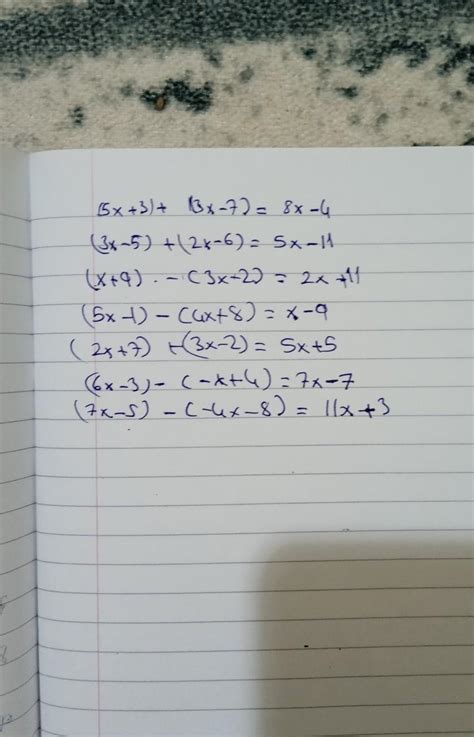 (5x+3)+ (3x-7)= 8x-4
(3x-5) +(2x-6)= 5x-11
(x+9) . -(3x-2) = 2x+11
(5x-1) -(4x+8)= x-9
(2x+7) +(3x-2)= 5x+5
(6x-3)- (-x+4)=7x-7
(7x-5) -(-4x-8)= 11x+3